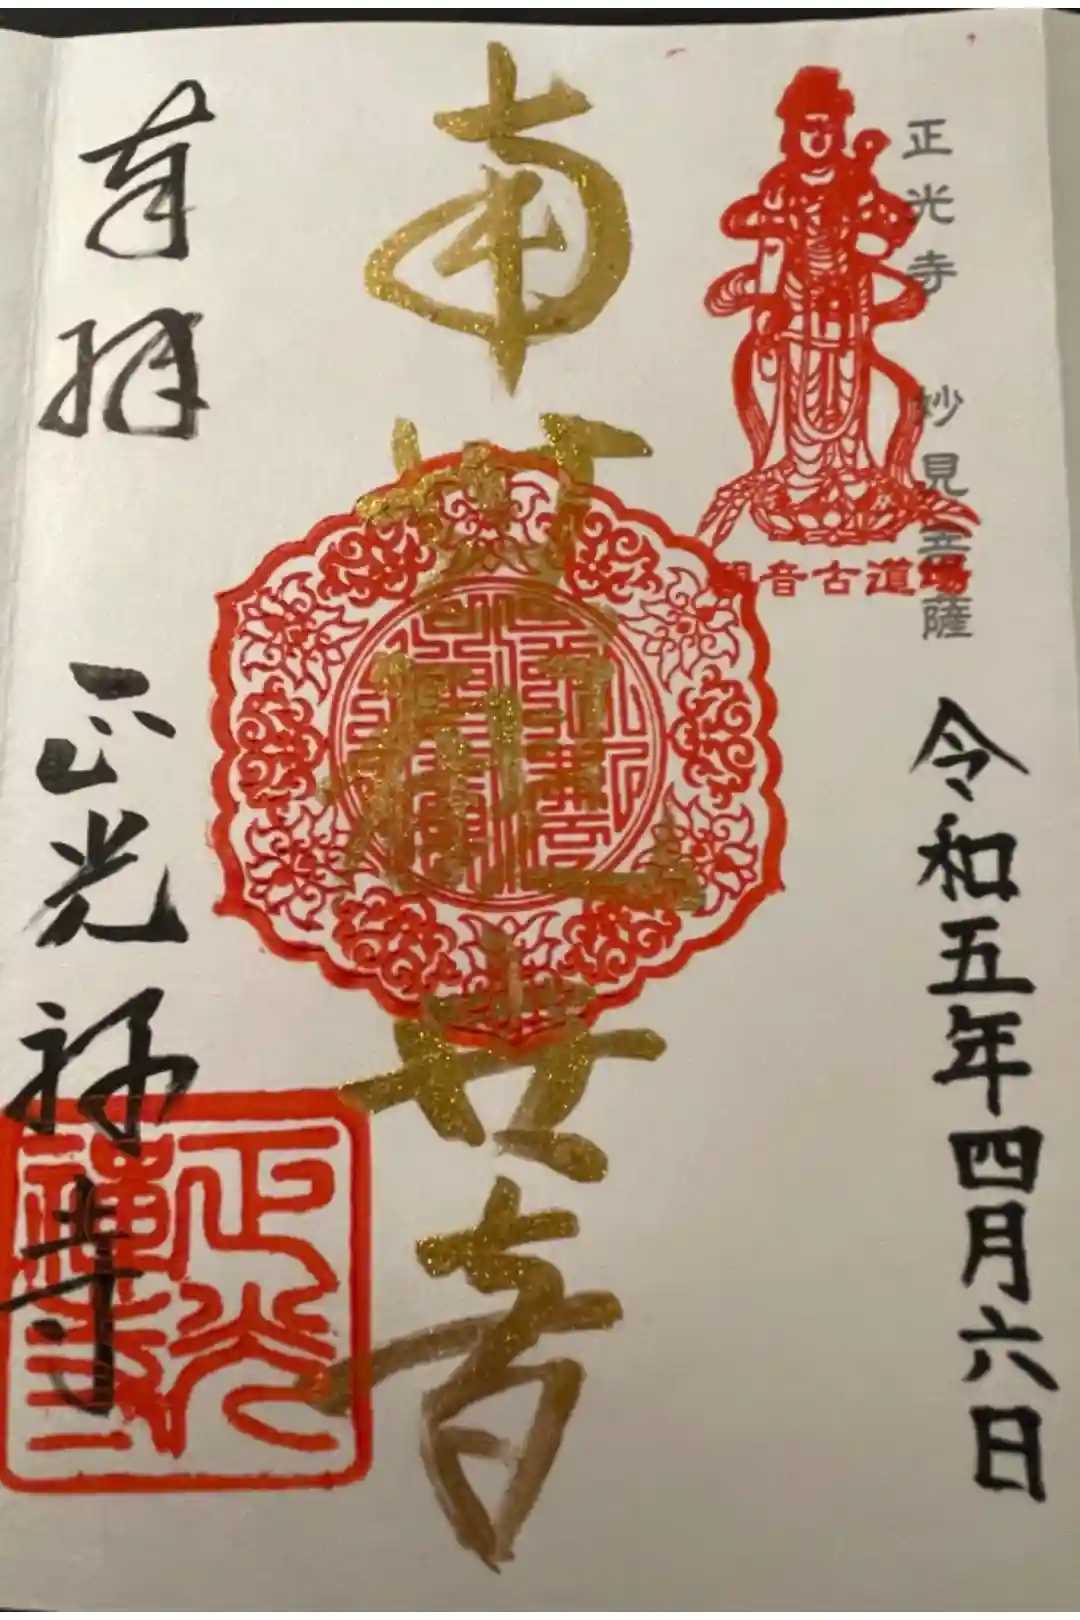 正光寺　妙見菩薩
觀音古道場
令和五年四月六日
南無観世音
奉拝
正光禅寺
正光
禪寺